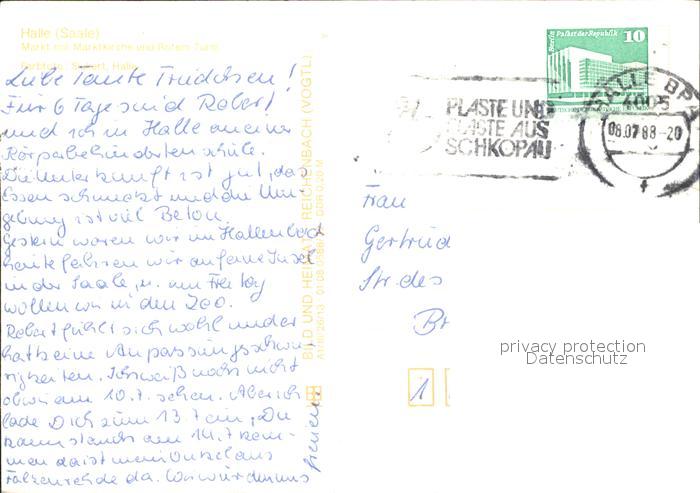 Halle (Saale)
Markt mit Marktkirche und Rotem Turm
Farbfoto: Seifert, Halle
Liebe Tante Friedchen!
Für 6 Tage sind Robert
und ich in Halle an einer
Körperbehindertenschule.
Die Unterkunft ist gut, das
Essen schmeckt und die Um-
gebung ist viel Beton.
Gestern waren wir im Hallenbad
heute fahren wir auf eine Insel
in der Saale, u. am Freitag
wollen wir in den Zoo.
Robert fühlt sich wohl und er
hat keine Anpassungsschwie-
rigkeiten. Ich weiß noch nicht
ob wir am 10.7. sehen. Aber ich
lade Dich zum 13.7 ein, Du
kannst auch am 14.7 kom-
men da ist mein Onkel aus
da. Wir würden uns
freuen
BILD UND HEIMAT REICHENBACH (VOGTL)
A1/ DDR 0,20 M
Berlin Palast der Republik
10
PLASTE UND
ELASTE AUS
SCHKOPAU
HALLE BPA
4005
08.07.88-20
Frau
Gertrud
Str. des
Br
1
privacy protection
Datenschutz